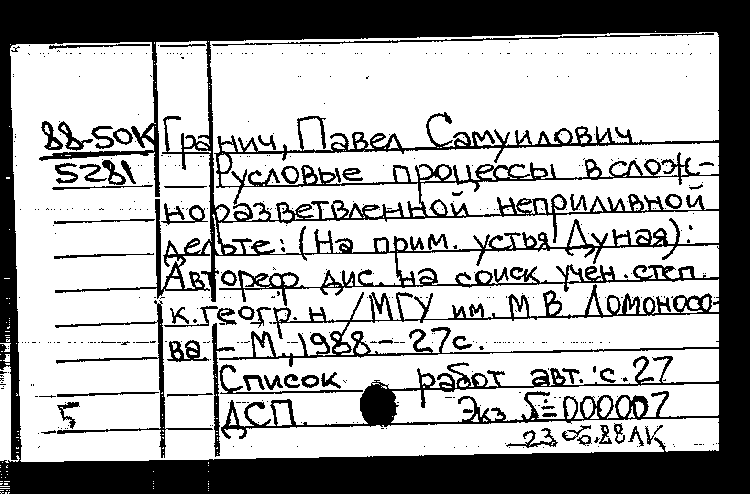 88-50К Гранич, Павел Самуилович
5281 Русловые процессы в слож-
норазветвленной неприливной
дельте: (На прим. устья Дуная):
Автореф. дис. на соиск. учен. степ.
к. геогр. н. /МГУ им. М.В. Ломоносо-
ва. – М., 1988. – 27с.
Список работ авт.: с. 27
5 ДСП. Экз №=000007
23.06.88 ЛК